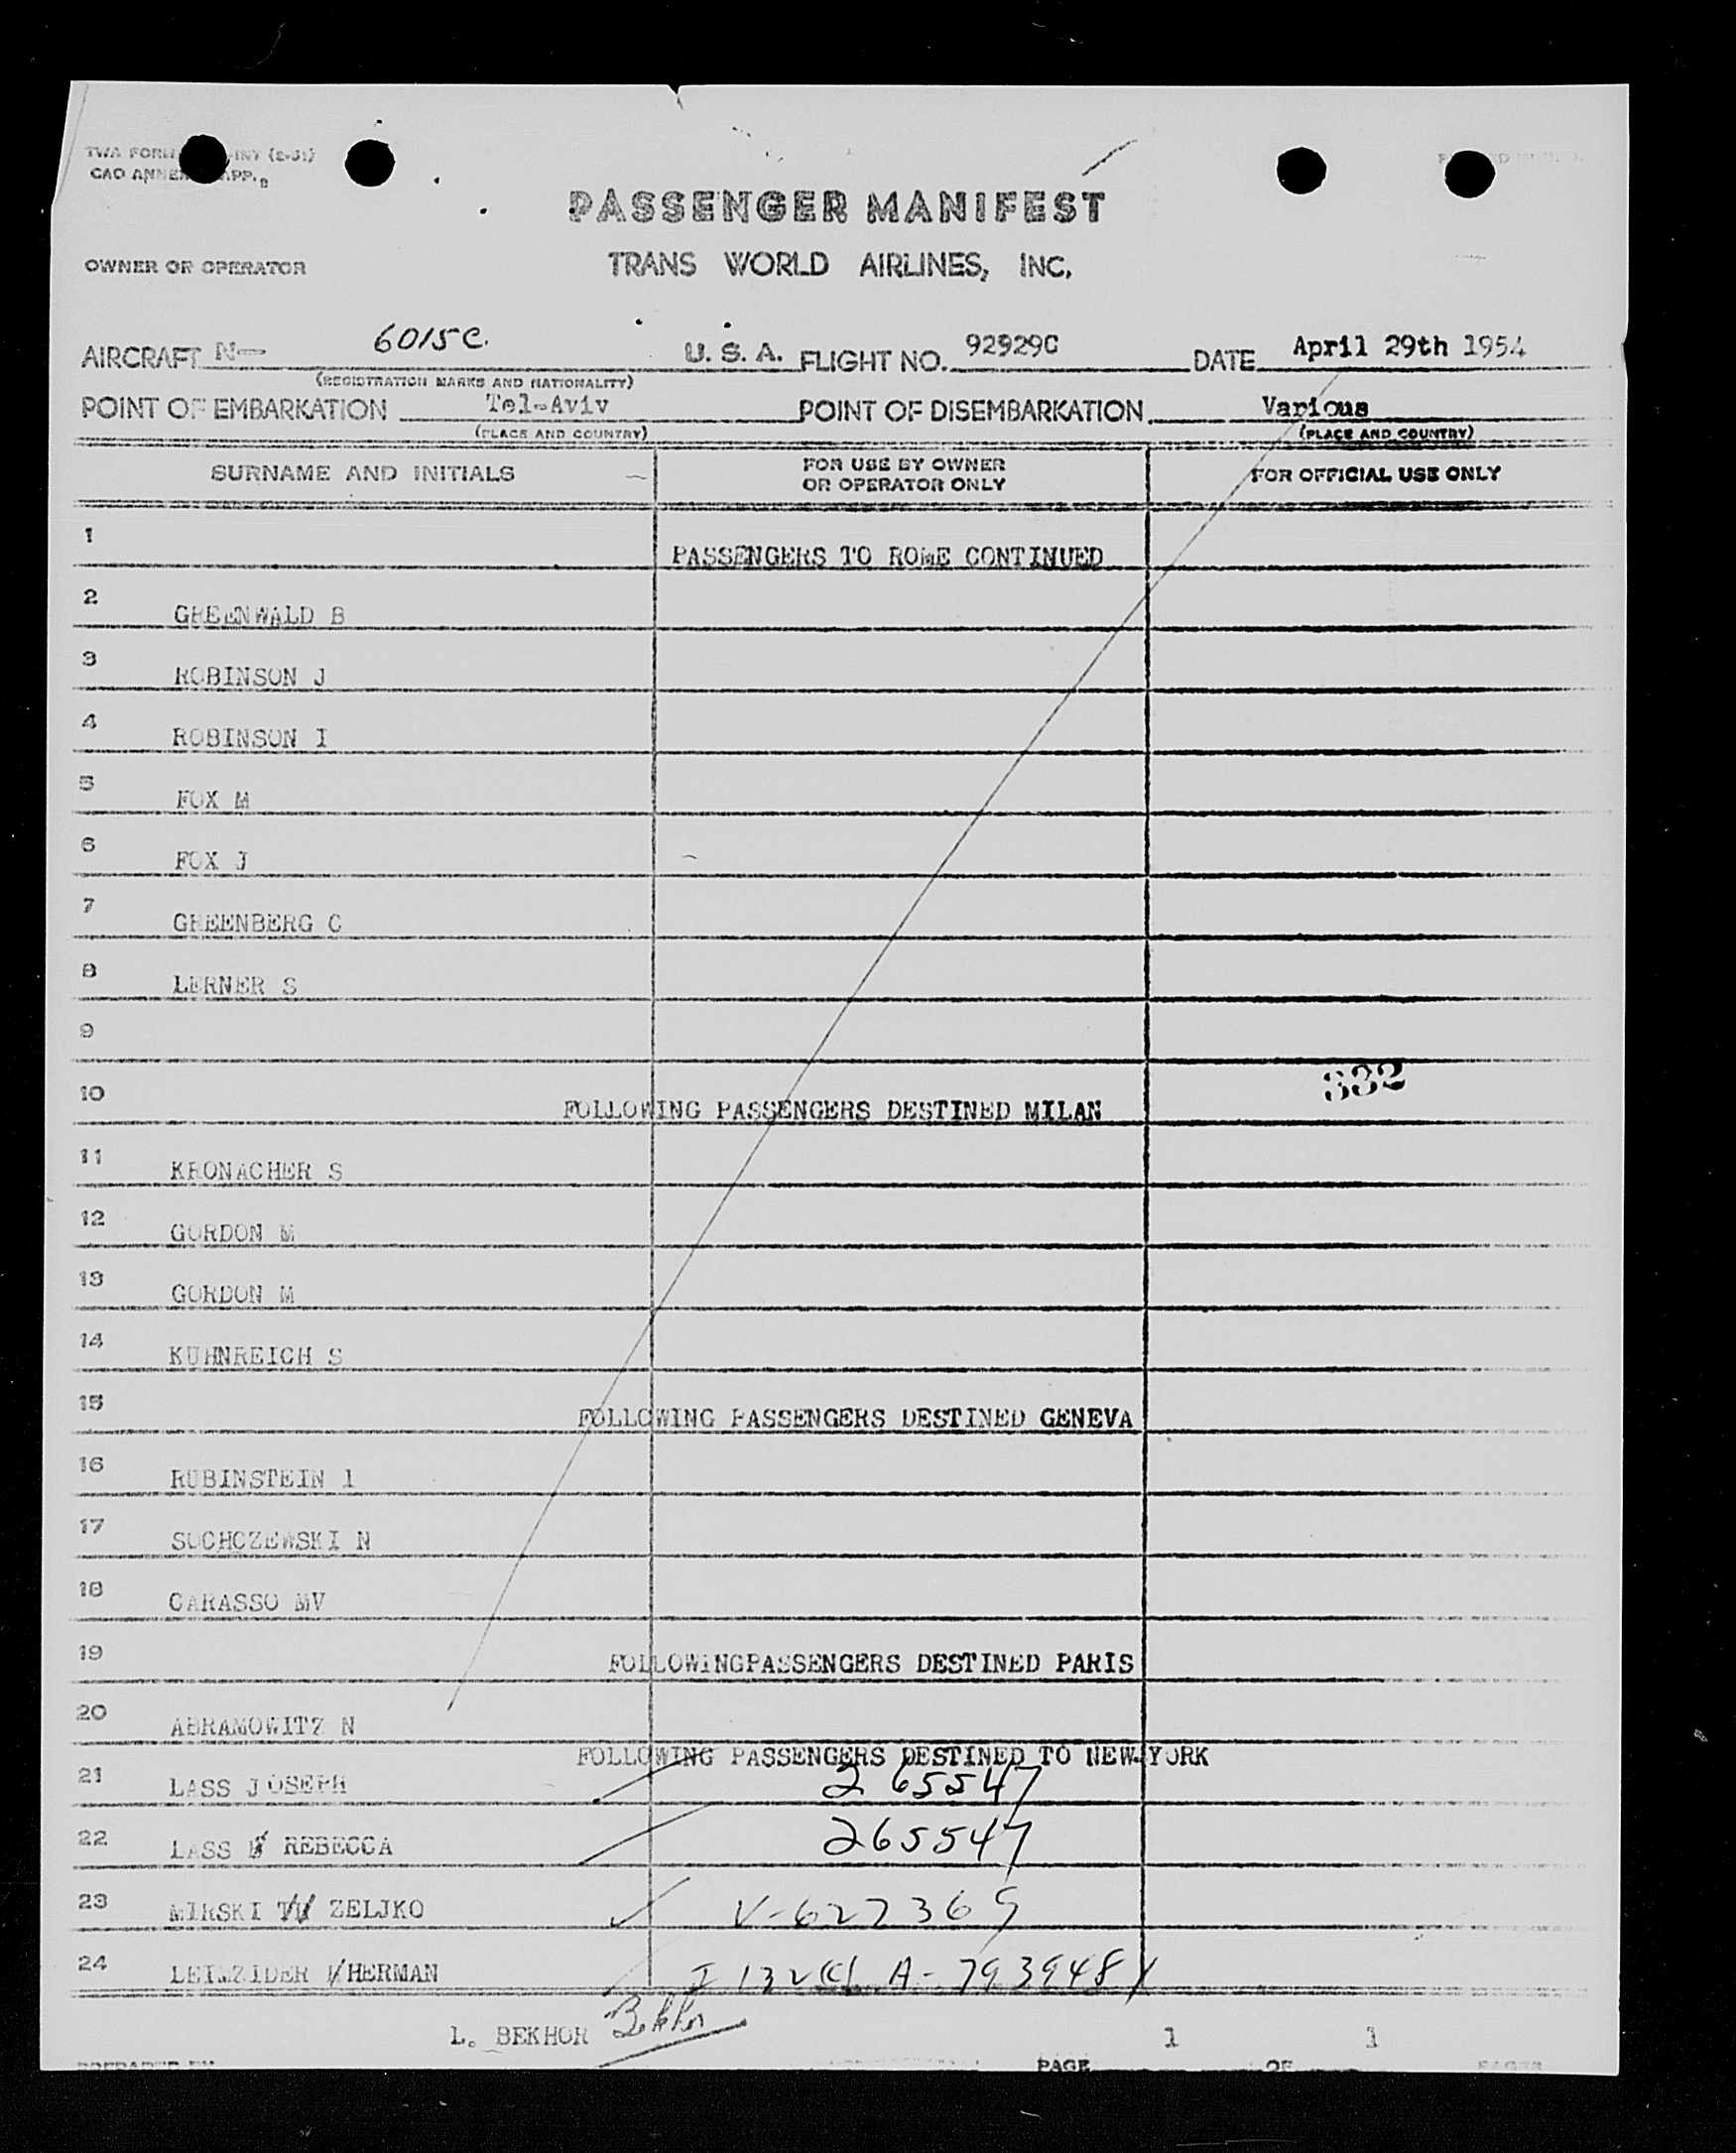 TWA FORM INT (2-51)
CAO ANNEX APP.
PASSENGER MANIFEST
OWNER OR OPERATOR
TRANS WORLD AIRLINES, INC.
AIRCRAFT N- 6015C. U. S. A. FLIGHT NO. 92929C DATE April 29th 1954
(REGISTRATION MARKS AND NATIONALITY)
POINT OF EMBARKATION Tel-Aviv POINT OF DISEMBARKATION Various
(PLACE AND COUNTRY) (PLACE AND COUNTRY)
SURNAME AND INITIALS FOR USE BY OWNER OR OPERATOR ONLY FOR OFFICIAL USE ONLY
1 PASSENGERS TO ROME CONTINUED
2 GREENWALD B
3 ROBINSON J
4 ROBINSON I
5 FOX M
6 FOX J
7 GREENBERG C
8 LERNER S
9
332
10 FOLLOWING PASSENGERS DESTINED MILAN
11 KRONACHER S
12 GORDON M
13 GORDON M
14 KUHNREICH S
15 FOLLOWING PASSENGERS DESTINED GENEVA
16 RUBINSTEIN 1
17 SOCHCZEWSKI N
18 CARASSO MV
19 FOLLOWINGPASSENGERS DESTINED PARIS
20 ABRAMOWITZ N
FOLLOWING PASSENGERS DESTINED TO NEW YORK
21 LASS JOSEPH 265547
22 LASS REBECCA 265547
23 MIRSKI ZELJKO V-627369
24 LEIMZIDER HERMAN I 132(c) A-7939484
L. BEKHOR Bekhor 1 1
PREPARED BY PAGE OF PAGES